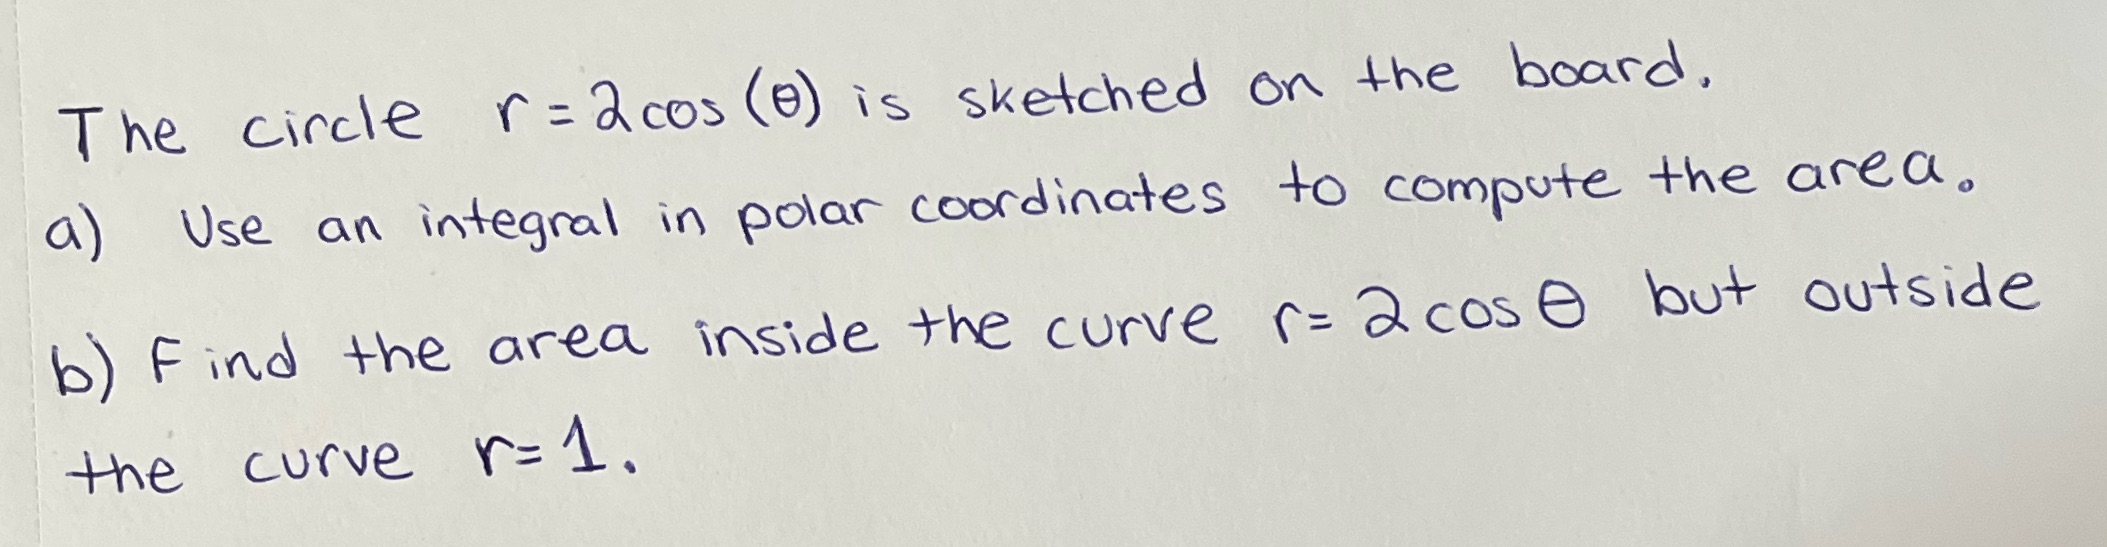 The circle r=2cos(θ) is sketched on the board.
a) Use an integral in polar coordinates to compute the area.
b) Find the area inside the curve r=2cosθ but outside
the curve r=1.